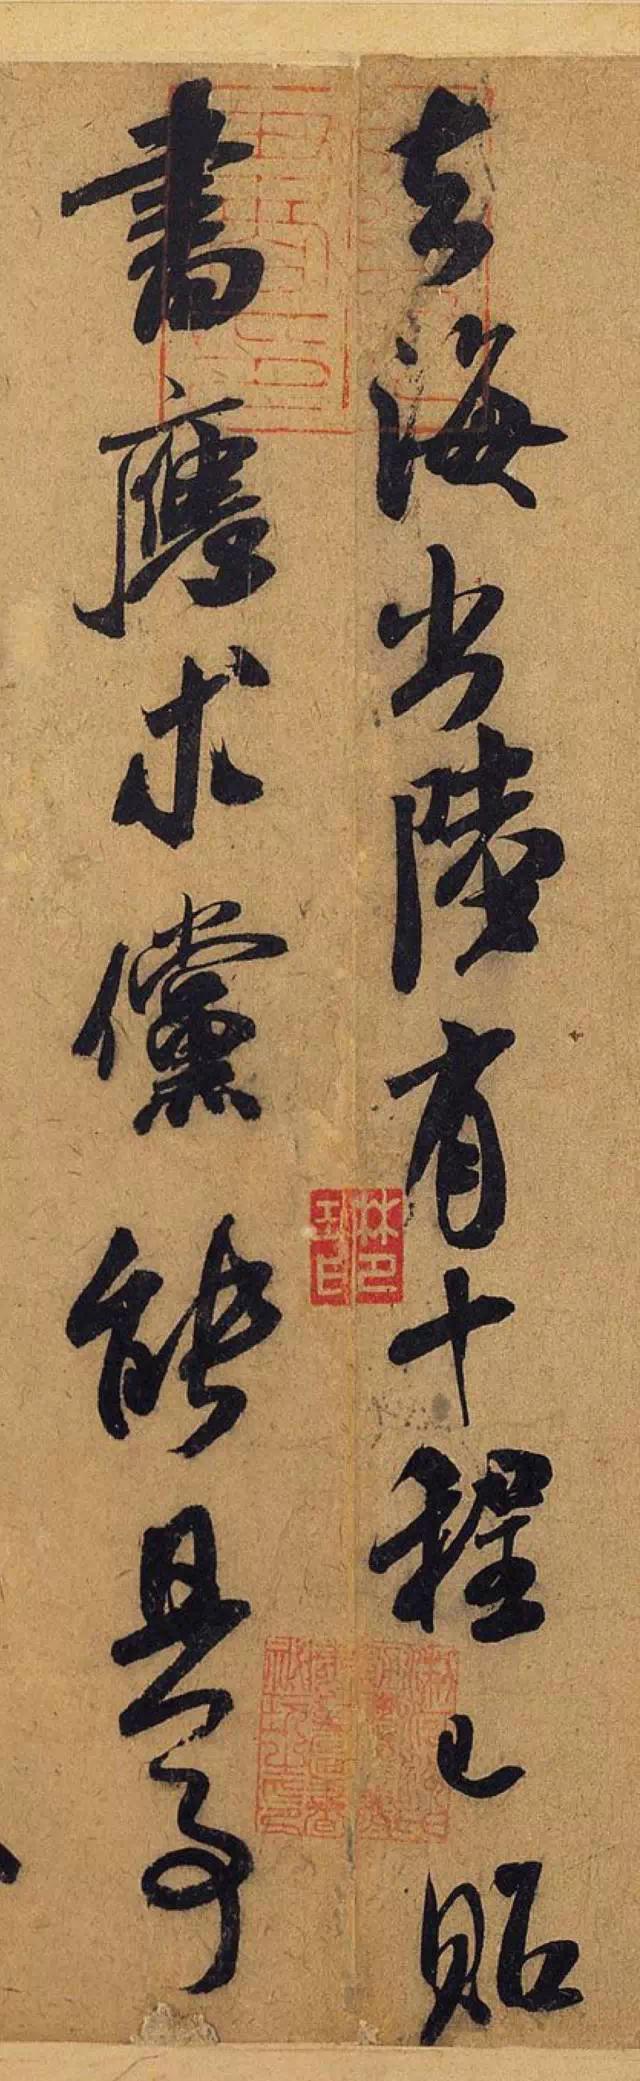 去海出陸有十程已貽
書應求儻能具事